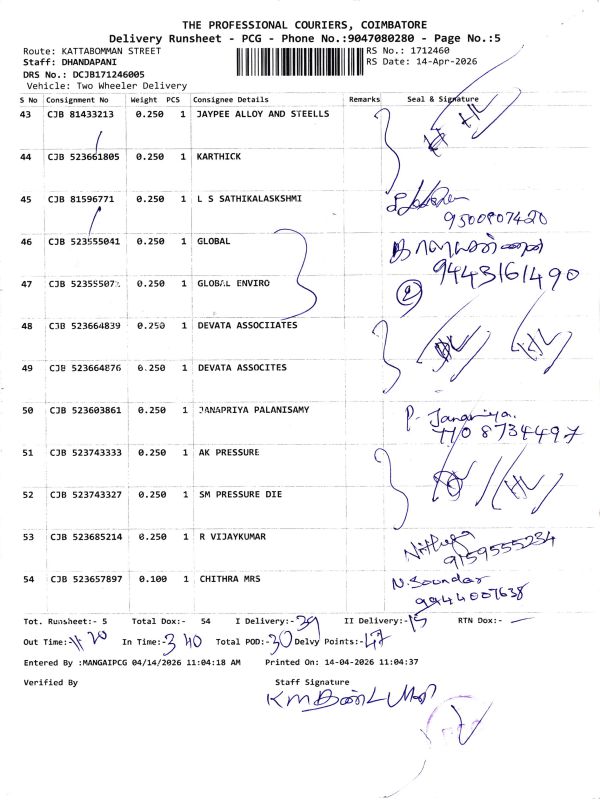 THE PROFESSIONAL COURIERS, COIMBATORE
Delivery Runsheet - PCG - Phone No.:9047080280 - Page No.:5
Route: KATTABOMMAN STREET RS No.: 1712460
Staff: DHANDAPANI RS Date: 14-Apr-2026
DRS No.: DCJB171246005
Vehicle: Two Wheeler Delivery
S No Consignment No Weight PCS Consignee Details Remarks Seal & Signature
43 CJB 81433213 0.250 1 JAYPEE ALLOY AND STEELLS
44 CJB 523661805 0.250 1 KARTHICK
45 CJB 81596771 0.250 1 L S SATHIKALASKSHMI
9500907420
46 CJB 523555041 0.250 1 GLOBAL
9443161490
47 CJB 52355507 0.250 1 GLOBAL ENVIRO 2
48 CJB 523664839 0.250 1 DEVATA ASSOCIIATES
49 CJB 523664876 0.250 1 DEVATA ASSOCITES
50 CJB 523603861 0.250 1 JANAPRIYA PALANISAMY P. Janapriya.
7708734497
51 CJB 523743333 0.250 1 AK PRESSURE
52 CJB 523743327 0.250 1 SM PRESSURE DIE
53 CJB 523685214 0.250 1 R VIJAYKUMAR Nithya
9159555234
54 CJB 523657897 0.100 1 CHITHRA MRS N. Soundar
9944007638
Tot. Runsheet:- 5 Total Dox:- 54 I Delivery:- 39 II Delivery:- 15 RTN Dox:- -
Out Time:- 11 20 In Time:- 3 40 Total POD:- 30 Delvy Points:- 47
Entered By :MANGAIPCG 04/14/2026 11:04:18 AM Printed On: 14-04-2026 11:04:37
Verified By Staff Signature